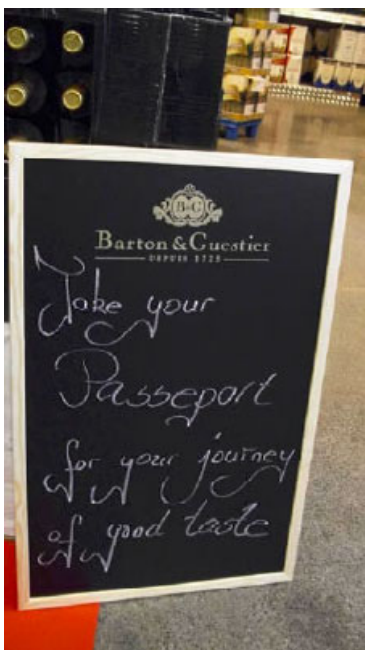 B&G
Barton & Guestier
DEPUIS 1725
Take your
Passeport
for your journey
of good taste